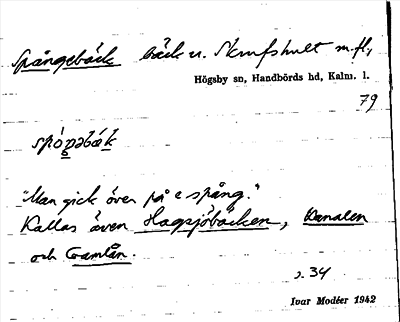 Spångebäck bäck u. Skrufshult m.fl.,
Högsby sn, Handbörds hd, Kalm. l.
79
spóŋəbák
"Man gick över på e spång."
Kallas även Hagsjöbäcken, Kanalen
och Gamlån.
s. 34
Ivar Modéer 1942